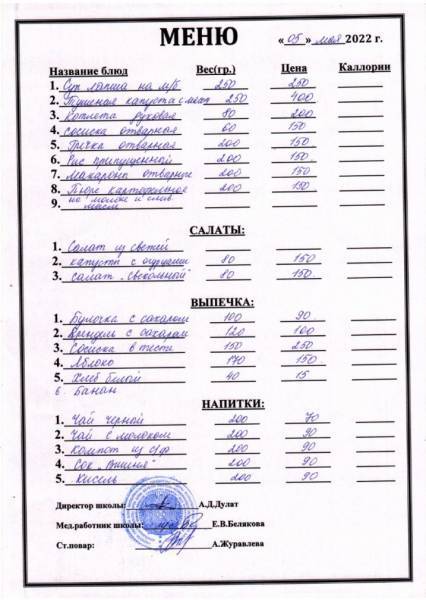 МЕНЮ «05» мая 2022 г.
Название блюд Вес(гр.) Цена Каллории
1. Суп лапша на м/б 250 250
2. Тушеная капуста с мяс 250 400
3. Котлета духовая 80 200
4. сосиска отварная 60 150
5. Гречка отварная 200 150
6. Рис припущенный 200 150
7. макароны отварные 200 150
8. Пюре картофельное 200 150
9. на молоке и слив маслом
САЛАТЫ:
1. Салат из свежей
2. капусты с огурцами 80 150
3. салат "Свекольный" 80 150
ВЫПЕЧКА:
1. Булочка с сахаром 100 90
2. Крендель с сахаром 120 100
3. Сосиска в тесте 150 250
4. Яблоко 170 150
5. Хлеб белый 40 15
6. Банан
НАПИТКИ:
1. Чай черный 200 70
2. Чай с молоком 200 90
3. Компот из с/ф 200 90
4. Сок "Вишня" 200 90
5. Кисель 200 90
Директор школы: А.Д.Дулат
Мед.работник школы: Е.В.Белякова
Ст.повар: А.Журавлева